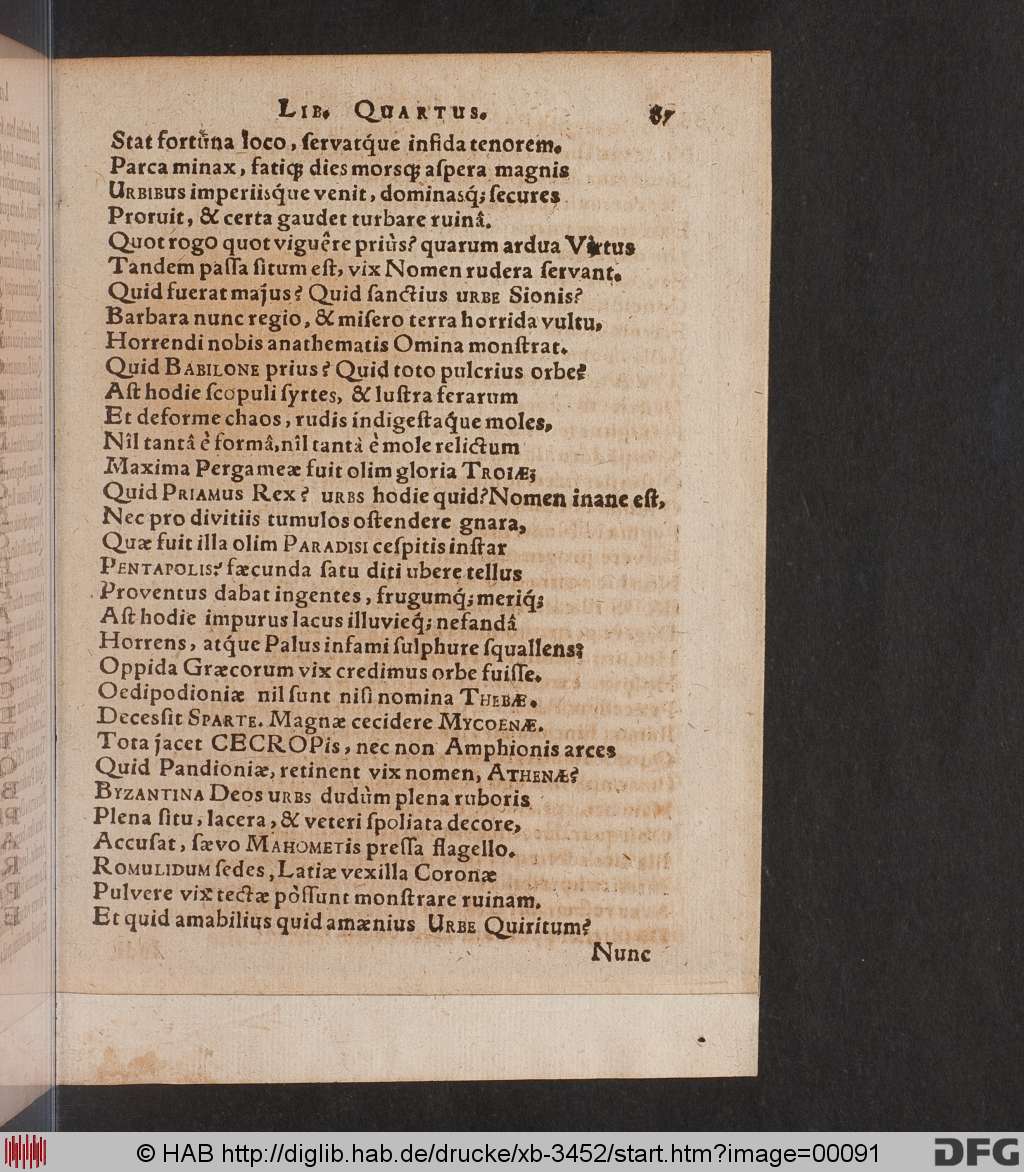 LIB. QUARTUS. 87
Stat fortũna loco, ſervatq́ue infida tenorem.
Parca minax, fatiq; dies morsq; aſpera magnis
URBIBUS imperiisq́ue venit, dominasq́; ſecures
Proruit, & certa gaudet turbare ruinâ.
Quot rogo quot viguêre priùs? quarum ardua Virtus
Tandem paſſa ſitum eſt, vix Nomen rudera ſervant.
Quid fuerat majus? Quid ſanctius URBE Sionis?
Barbara nunc regio, & miſero terra horrida vultu,
Horrendi nobis anathematis Omina monſtrat.
Quid BABILONE prius? Quid toto pulcrius orbe?
Aſt hodie ſcopuli ſyrtes, & luſtra ferarum
Et deforme chaos, rudis indigeſtaq́ue moles,
Nîl tantâ è formâ, nîl tantà è mole relictum
Maxima Pergameæ fuit olim gloria TROIÆ;
Quid PRIAMUS Rex? URBS hodie quid? Nomen inane eſt,
Nec pro divitiis tumulos oſtendere gnara,
Quæ fuit illa olim PARADISI ceſpitis inſtar
PENTAPOLIS? fæcunda ſatu diti ubere tellus
Proventus dabat ingentes, frugumq́; meriq́;
Aſt hodie impurus lacus illuvieq́; nefandâ
Horrens, atq́ue Palus infami ſulphure ſquallens;
Oppida Græcorum vix credimus orbe fuiſſe.
Oedipodioniæ nil ſunt niſi nomina THEBÆ.
Decesſit SPARTE. Magnæ cecidere MYCOENÆ.
Tota jacet CECROPis, nec non Amphionis arces
Quid Pandioniæ, retinent vix nomen, ATHENÆ?
BYZANTINA Deos URBS dudùm plena ruboris
Plena ſitu, lacera, & veteri ſpoliata decore,
Accuſat, ſævo MAHOMETis preſſa flagello.
ROMULIDUM ſedes, Latiæ vexilla Coronæ
Pulvere vix tectæ pòſſunt monſtrare ruinam.
Et quid amabilius quid amænius URBE Quiritum?
Nunc
© HAB http://diglib.hab.de/drucke/xb-3452/start.htm?image=00091
DFG